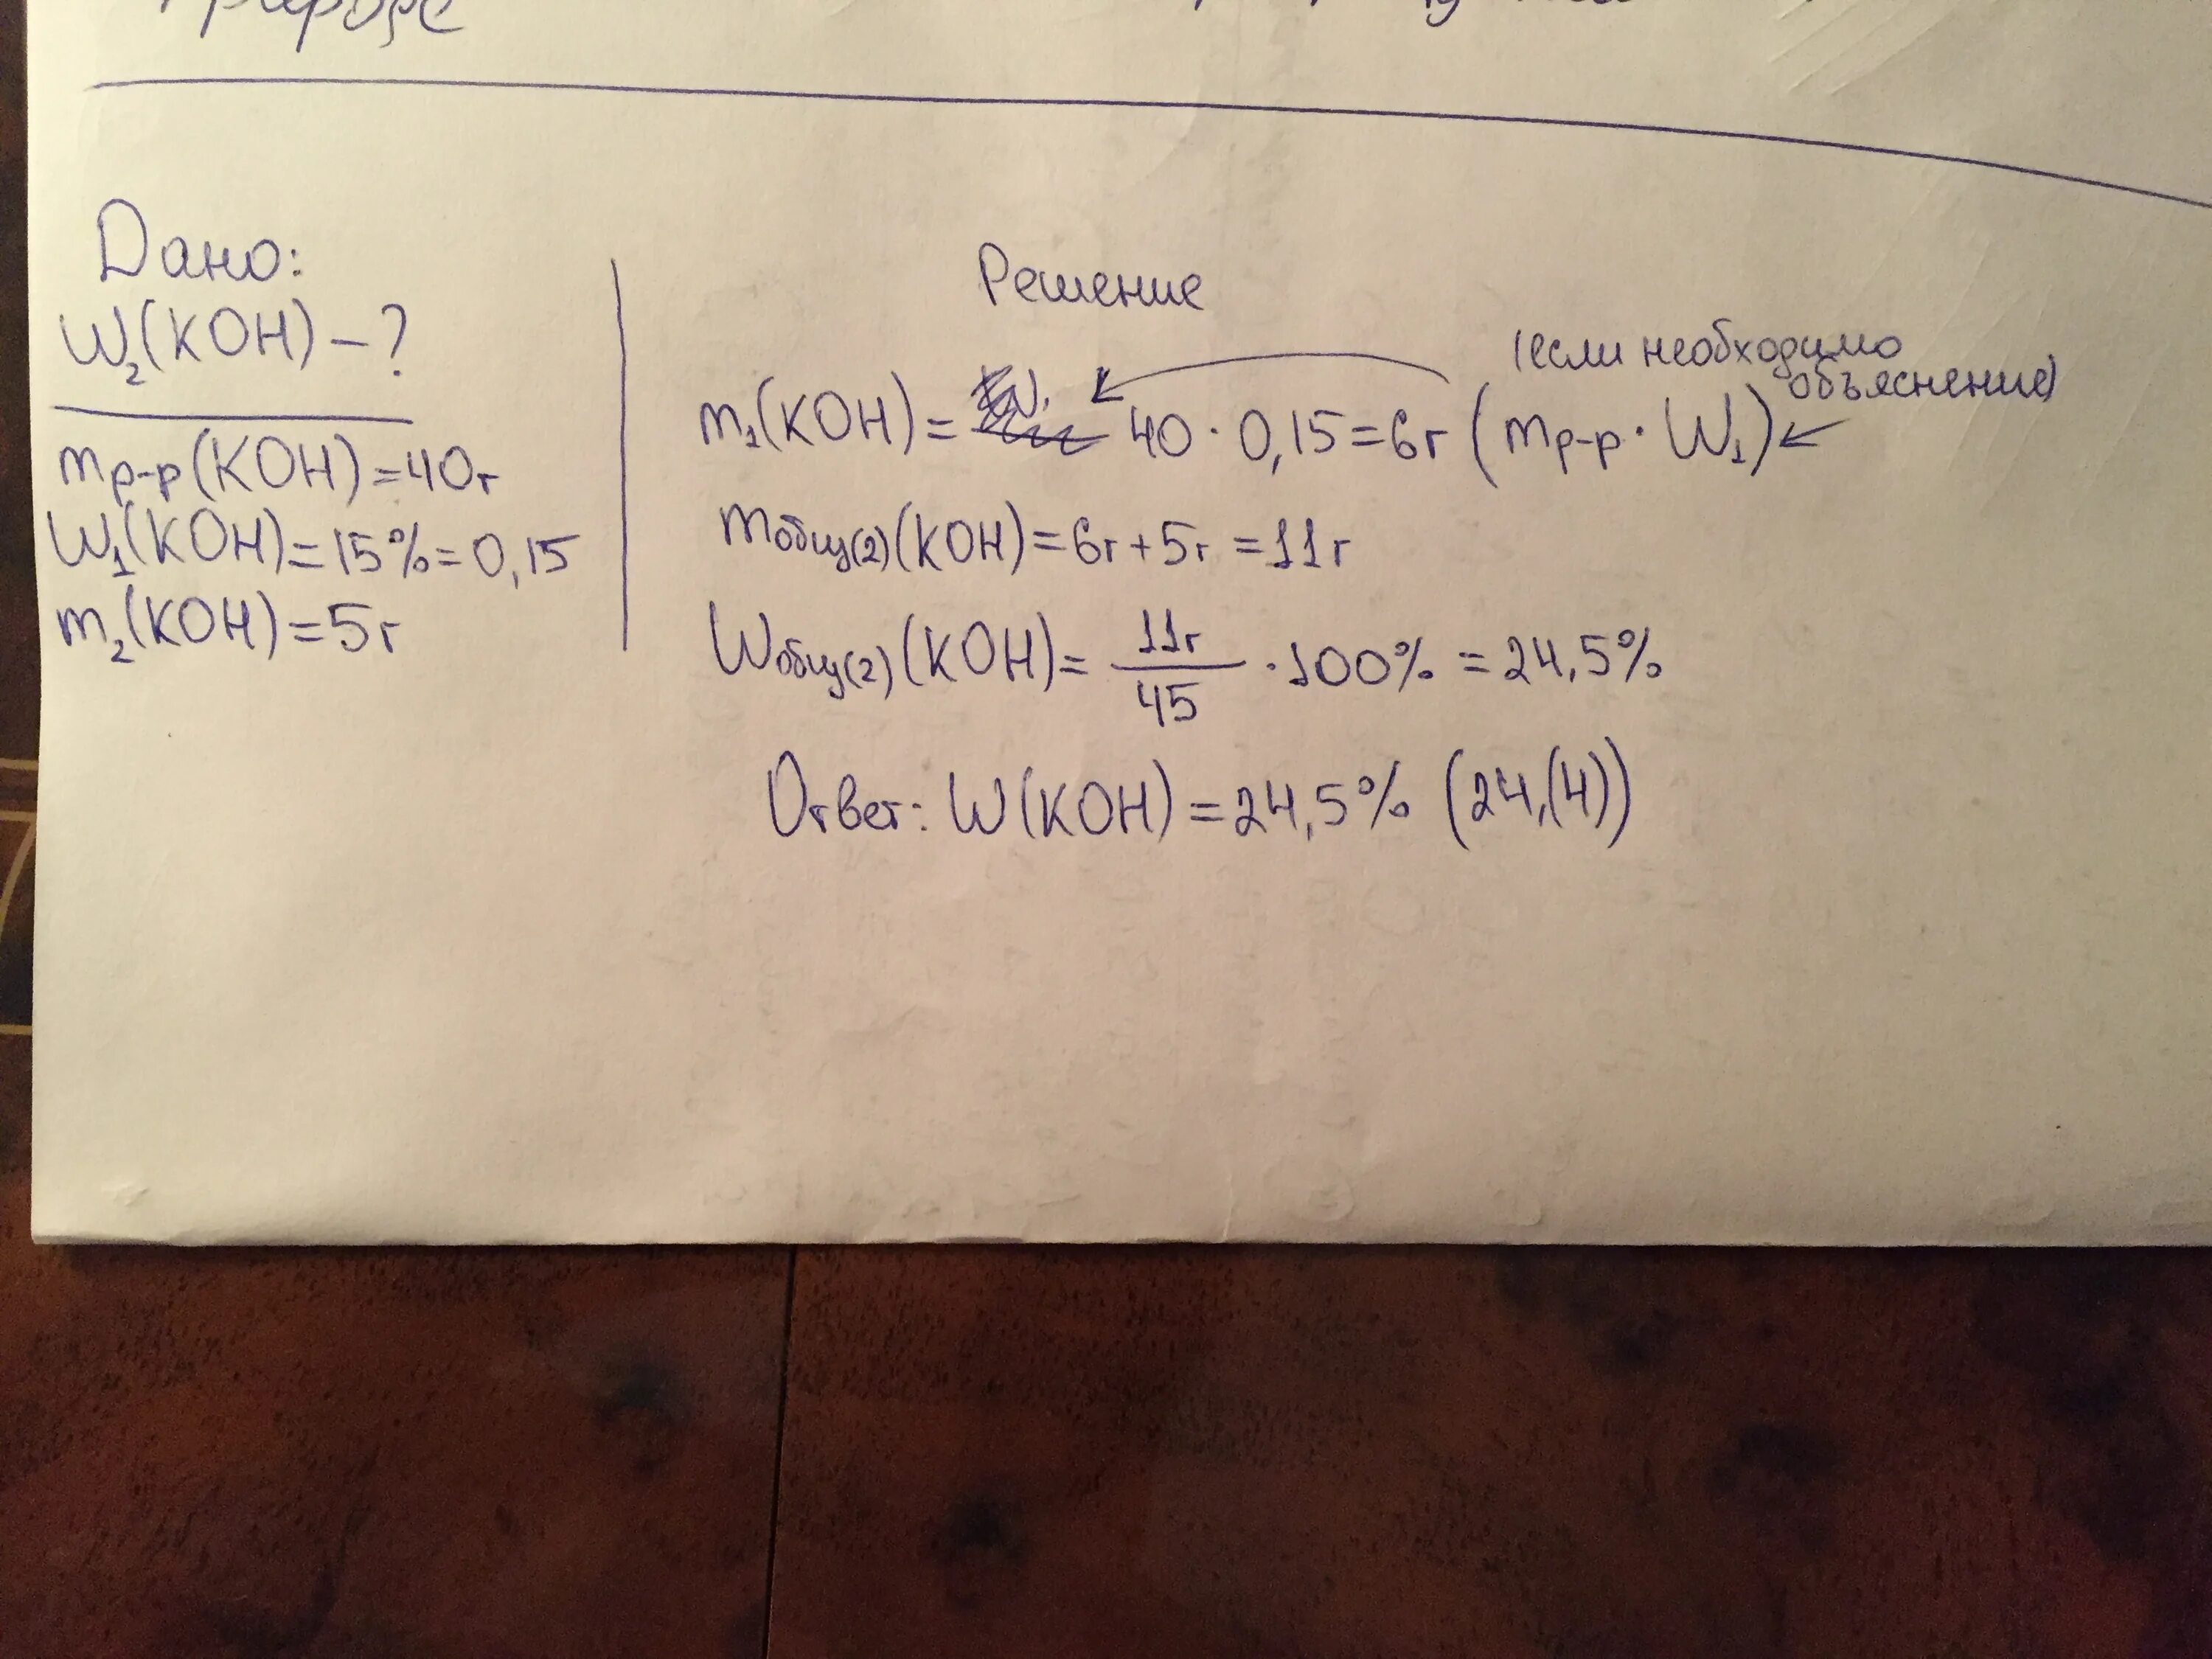 Природе
Дано:
W₂(KOH) – ?
mр-р(KOH) = 40г
W₁(KOH) = 15% = 0,15
m₂(KOH) = 5г
Решение
(если необходимо
объяснение)
m₁(KOH) = 40 · 0,15 = 6г (mр-р · W₁)
mобщ(2)(KOH) = 6г + 5г = 11г
Wобщ(2)(KOH) = 11г/45 · 100% = 24,5%
Ответ: W(KOH) = 24,5% (24,(4))